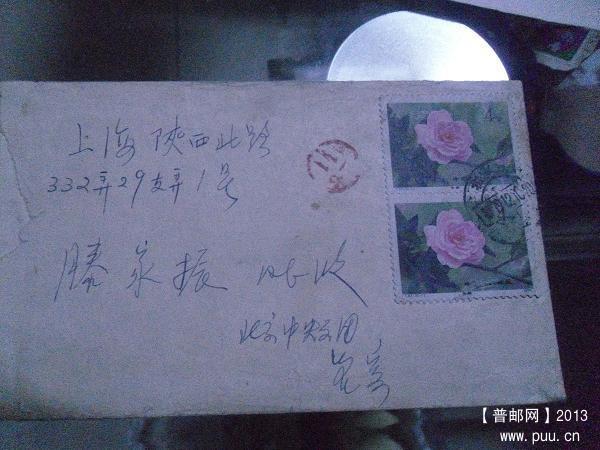 上海陕西北路
332弄29支弄1号
滕永振 收
北京中央文团
4
【普邮网】2013
www.puu.cn